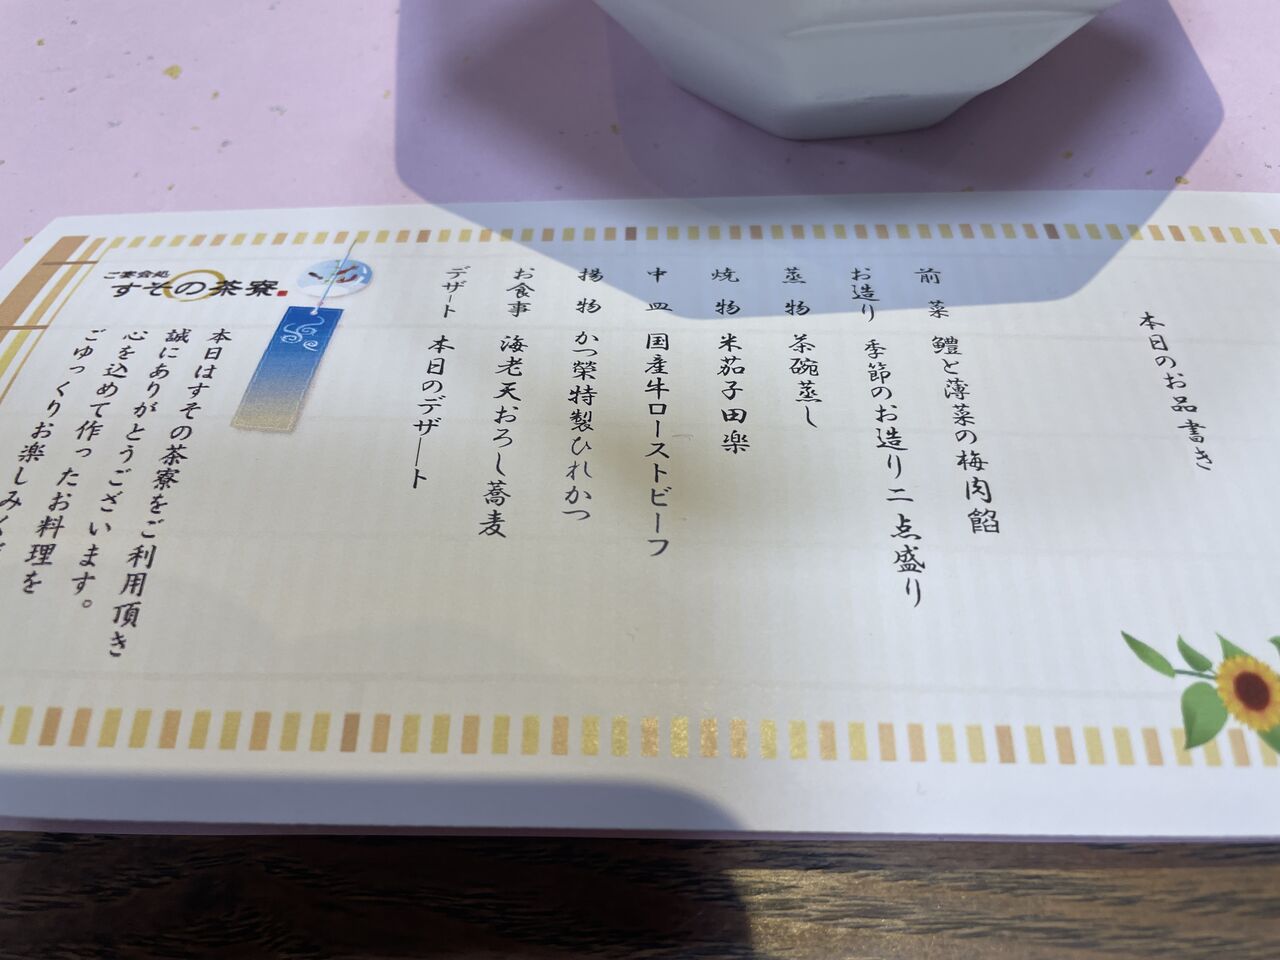 本日のお品書き
前菜 鱧と薄菜の梅肉餡
お造り 季節のお造り二点盛り
蒸物 茶碗蒸し
焼物 米茄子田楽
中皿 国産牛ローストビーフ
揚物 かつ榮特製ひれかつ
お食事 海老天おろし蕎麦
デザート 本日のデザート
ご宴会処
すその茶寮
本日はすその茶寮をご利用頂き
誠にありがとうございます。
心を込めて作ったお料理を
ごゆっくりお楽しみく